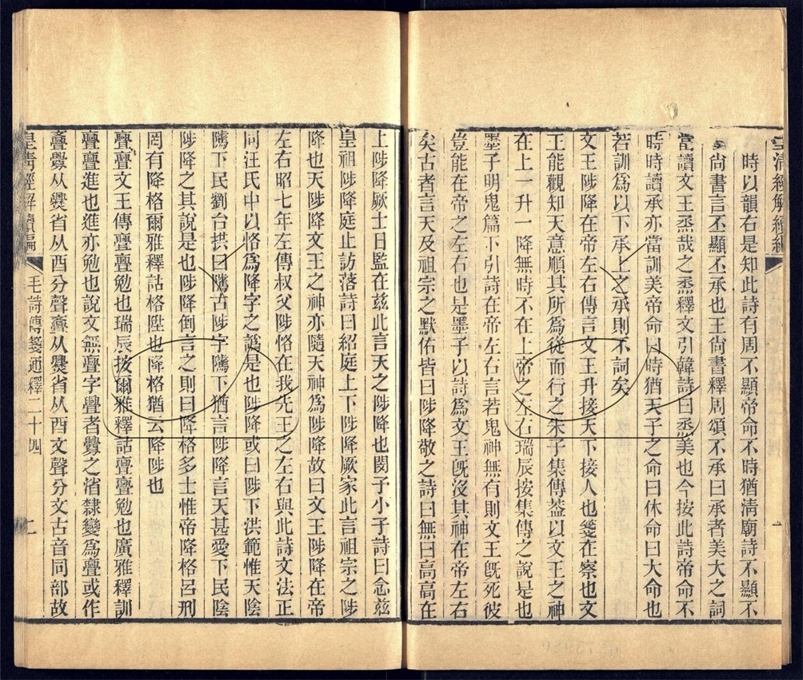 皇清經解續編
一
時以韻右是知此詩有周不顯帝命不時猶清廟詩不顯不
尚書言丕顯丕承也王尚書釋周頌不承曰承者美大之詞
當讀文王烝哉之烝釋文引韓詩曰烝美也今按此詩帝命不
時時讀承亦當訓美帝命曰時猶天子之命曰休命曰大命也
若訓爲以下承上之承則不詞矣
文王陟降在帝左右傳言文王升接天下接人也箋在察也文
王能觀知天意順其所爲從而行之朱子集傳蓋以文王之神
在上一升一降無時不在上帝之左右瑞辰按集傳之說是也
墨子明鬼篇下引詩在帝左右言若鬼神無有則文王旣死彼
豈能在帝之左右也是墨子以詩爲文王旣沒其神在帝左右
矣古者言天及祖宗之默佑皆曰陟降敬之詩曰無曰高高在
上陟降厥士日監在茲此言天之陟降也閔子小子詩曰念茲
皇祖陟降庭止訪落詩曰紹庭上下陟降厥家此言祖宗之陟
降也天陟降文王之神亦隨天神爲陟降故曰文王陟降在帝
左右昭七年左傳叔父陟恪在我先王之左右與此詩文法正
同汪氏中以恪爲降字之譌是也陟降或曰陟下洪範惟天陰
隲下民劉台拱曰隲古陟字隲下猶言陟降言天甚愛下民陰
陟降之其說是也陟降倒言之則曰降格多士惟帝降格呂刑
罔有降格爾雅釋詁格陞也降格猶云降陟也
亹亹文王傳亹亹勉也瑞辰按爾雅釋詁亹亹勉也廣雅釋訓
亹亹進也進亦勉也說文無亹字亹者釁之渻隸變爲亹或作
斖釁从爨省从酉分聲斖从爨省从酉文聲分文古音同部故
皇清經解續編
毛詩傳箋通釋二十四